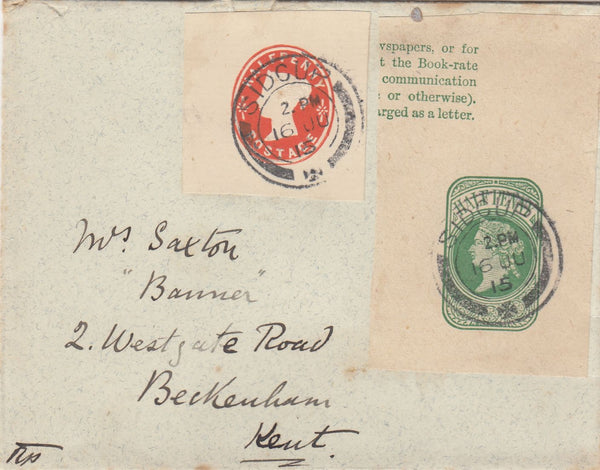 HALFPENNY
POSTAGE
SIDCUP
2. PM
16 JU
15
wspapers, or for
t the Book-rate
communication
or otherwise).
rged as a letter.
SIDCUP
2. PM
16 JU
15
Mrs Saxton
"Banner"
2. Westgate Road
Beckenham
Kent.